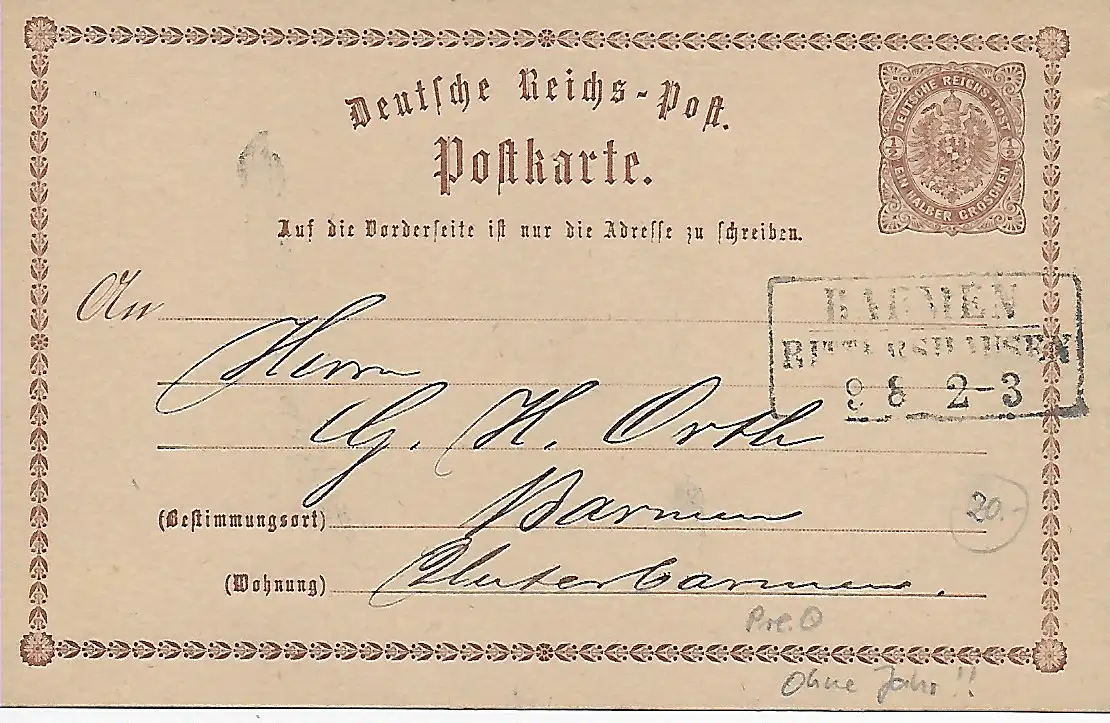 Deutsche Reichs-Post.
Postkarte.
DEUTSCHE REICHS-POST
½ ½
EIN HALBER GROSCHEN
Auf die Vorderseite ist nur die Adresse zu schreiben.
BARMEN
RITTERSHAUSEN
9 8 2-3
An
Herrn
G. H. Orth
(Bestimmungsort) Barmen
20.-
(Wohnung) Unterbarmen.
Pre.O
Ohne Jahr!!